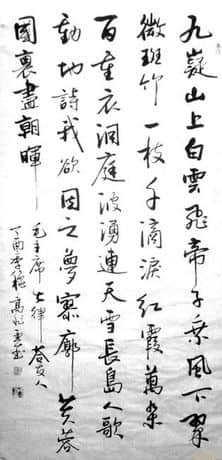 九嶷山上白雲飛帝子乘風下翠
微斑竹一枝千滴淚紅霞萬朵
百重衣洞庭波湧連天雪長島人歌
動地詩我欲因之夢寥廓芙蓉
國裏盡朝暉
毛主席七律答友人
丁酉 高 書